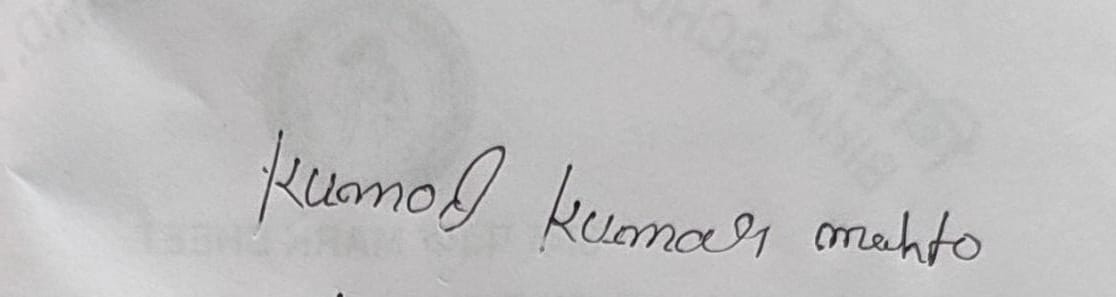 Kumod kumar mahto